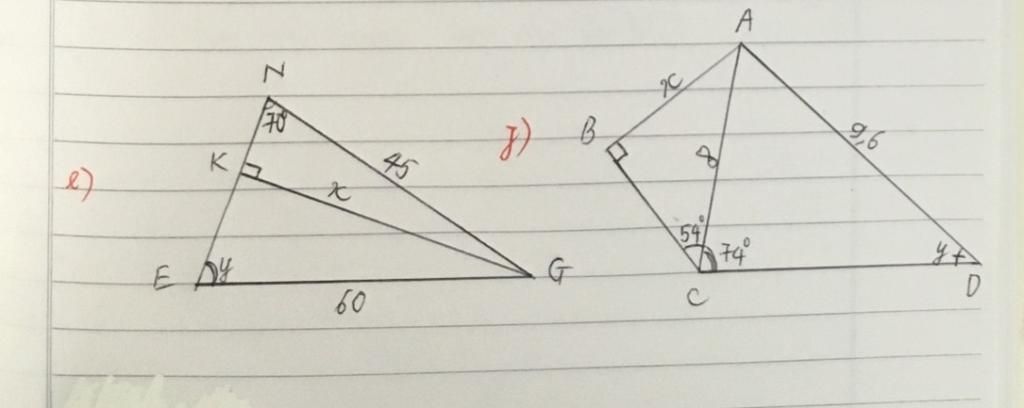 e)
N
70°
K
45
x
E
y
G
60
f)
A
x
B
8
9,6
54°
74°
y
C
D